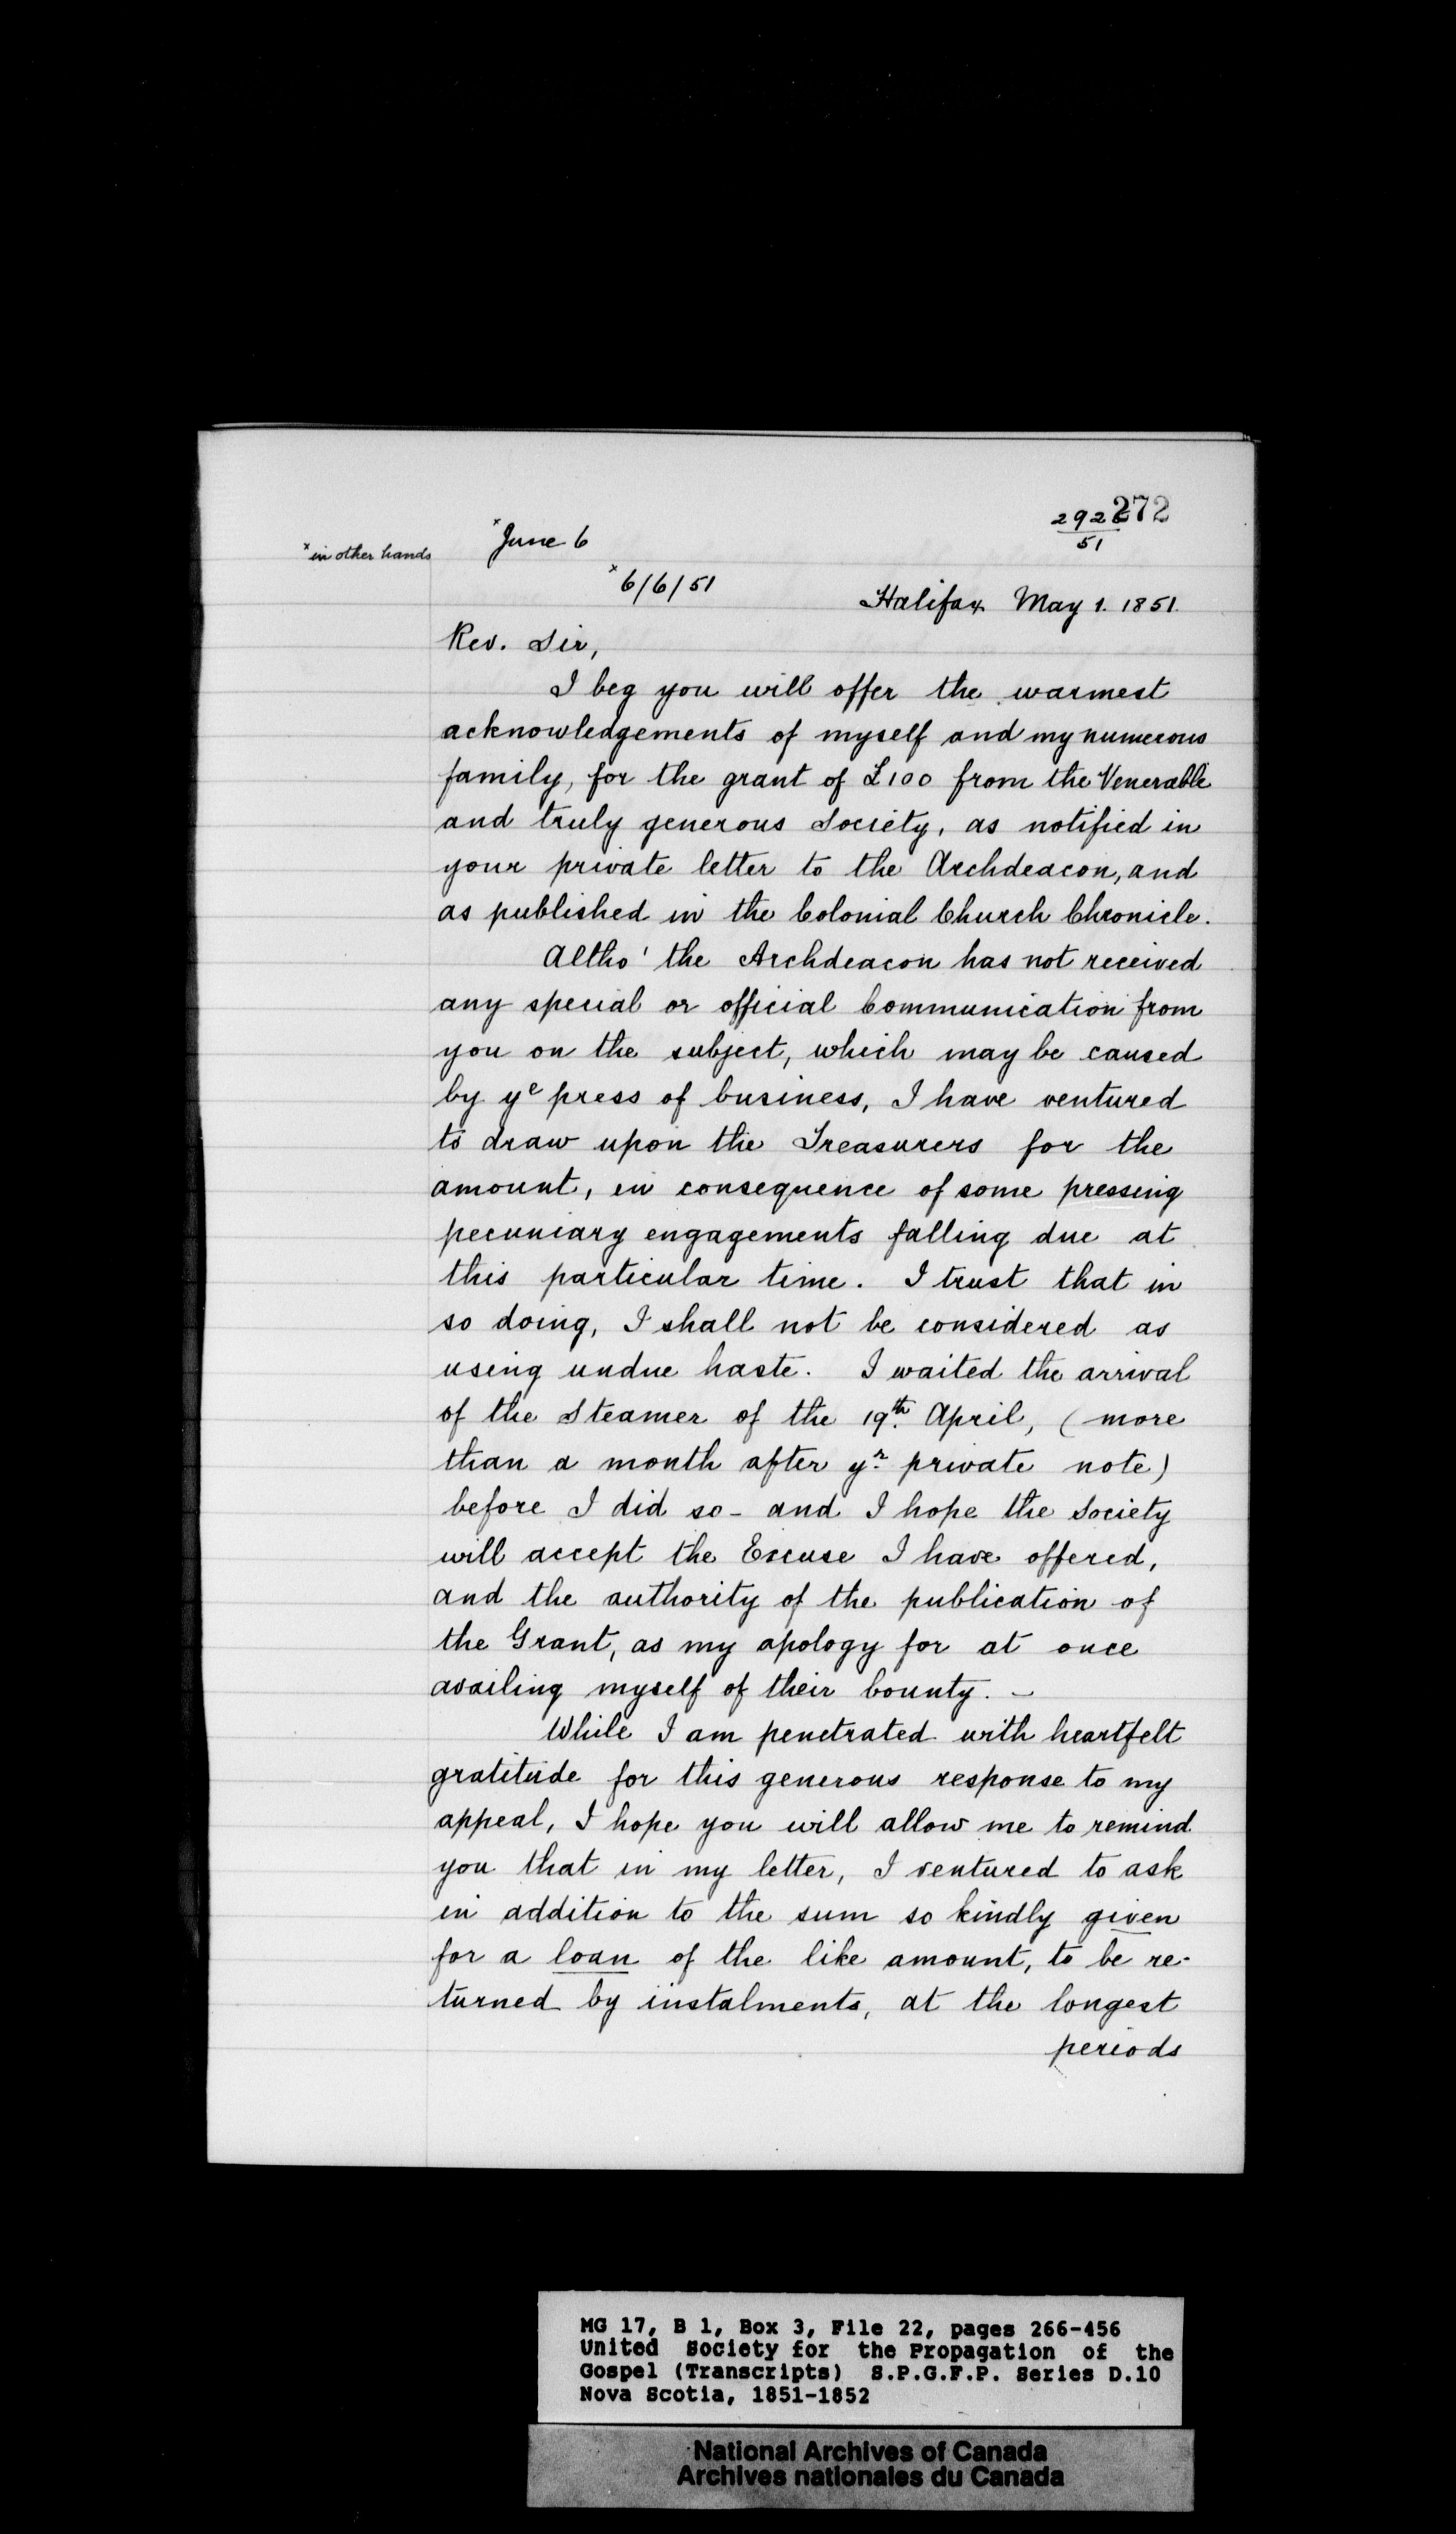 2926 272
51
x June 6
x in other hands
x 6/6/51
Halifax May 1. 1851.
Rev. Sir,
I beg you will offer the warmest
acknowledgements of myself and my numerous
family, for the grant of £100 from the Venerable
and truly generous Society, as notified in
your private letter to the Archdeacon, and
as published in the Colonial Church Chronicle.
Altho' the Archdeacon has not received
any special or official Communication from
you on the subject, which may be caused
by ye press of business, I have ventured
to draw upon the Treasurers for the
amount, in consequence of some pressing
pecuniary engagements falling due at
this particular time. I trust that in
so doing, I shall not be considered as
using undue haste. I waited the arrival
of the Steamer of the 19th April, (more
than a month after yr private note)
before I did so - and I hope the Society
will accept the Excuse I have offered,
and the authority of the publication of
the Grant, as my apology for at once
availing myself of their bounty. -
While I am penetrated with heartfelt
gratitude for this generous response to my
appeal, I hope you will allow me to remind
you that in my letter, I ventured to ask
in addition to the sum so kindly given
for a loan of the like amount, to be re-
turned by instalments, at the longest
periods
MG 17, B 1, Box 3, File 22, pages 266-456
United Society for the Propagation of the
Gospel (Transcripts) S.P.G.F.P. Series D.10
Nova Scotia, 1851-1852
National Archives of Canada
Archives nationales du Canada